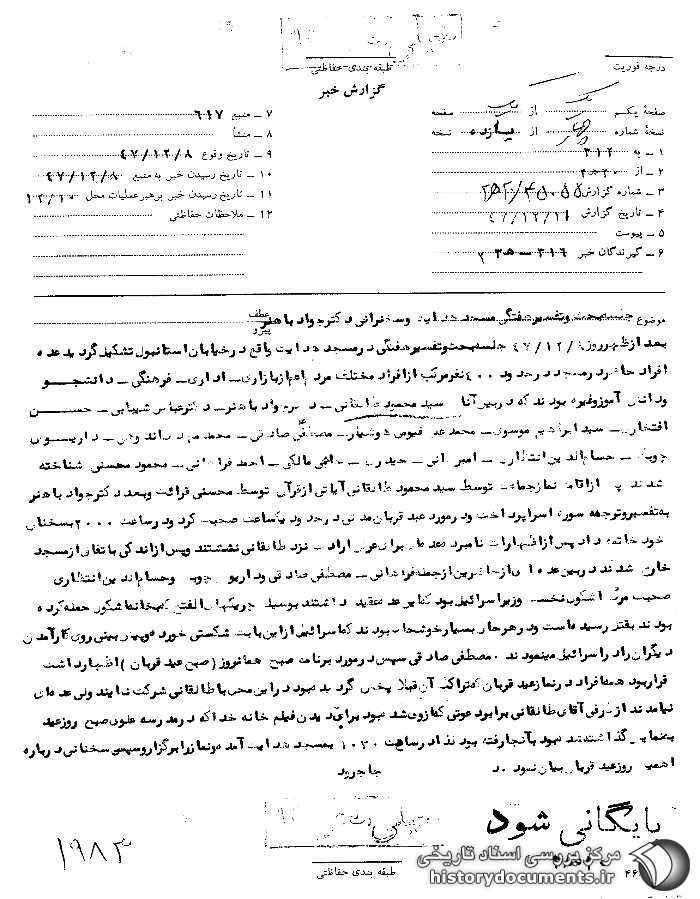 درجه فوریت
طبقه بندی حفاظتی
گزارش خبر
صفحهٔ یکم از یک صفحه
نسخهٔ شماره چهار از یازده نسخه
۱ ــ به ۳۱۲
۲ ــ از ۲۰۲۰
۳ ــ شماره گزارش
۴ ــ تاریخ گزارش ۴۷/۱۲/۱۱
۵ ــ پیوست
۶ ــ گیرندگان خبر ۳۱۶ ــ
۷ ــ منبع ۶۱۷
۸ ــ منشأ
۹ ــ تاریخ وقوع ۴۷/۱۲/۸
۱۰ ــ تاریخ رسیدن خبر به منبع ۴۷/۱۲/۸
۱۱ ــ تاریخ رسیدن خبر برهبر عملیات محل ۱۲/۱۰
۱۲ ــ ملاحظات حفاظتی
موضوع جلسه بحث و تفسیر هفتگی مسجد هدایت و سخنرانی دکتر جواد باهنر
عطف
پیرو
بعد از ظهر روز ۴۷/۱۲/۸ جلسه بحث و تفسیر هفتگی در مسجد هدایت واقع در خیابان استانبول تشکیل گردید عده
افراد حاضر در مسجد در حدود ۴۰۰ نفر مرکب از افراد مختلف مردم اعم از بازاری ــ اداری ــ فرهنگی ــ دانشجو
و دانش آموز و غیره بودند که در بین آنها سید محمود طالقانی ــ دکتر جواد باهنر ــ دکتر عباس شیبانی ــ حسن
افتخاری ــ سید ابراهیم موسوی ــ محمد علی فیوض هوشیار ــ مصطفی صادقی ــ محمد مهدی ــ داریوش
چوپک ــ حسام الدین انتظاری ــ امیر ــ حیدری ــ حاجی مالکی ــ احمد فراهانی ــ محمود محسنی شناخته
شدند پس از اقامه نماز جماعت توسط سید محمود طالقانی آیاتی از قرآن توسط محسنی قرائت و بعد دکتر جواد باهنر
به تفسیر و ترجمه سوره اسرا پرداخت و در مورد عید قربان مدتی در حدود یکساعت صحبت کرد و در ساعت ۲۰۰۰ بسخنان
خود خاتمه داد پس از اظهارات نامبرده عده‌ای برای عرض ارادت نزد طالقانی نشستند و پس از اندکی با تفاق از مسجد
خارج شدند در بین عده ای از حاضرین از جمله فراهانی ــ مصطفی صادقی و داریوش چوپک و حسام الدین انتظاری
صحبت مرگ اشکول نخست وزیر اسرائیل بود که این عده عقیده داشتند بوسیله چریکهای الفتح که بخانه اشکول حمله کرده
بودند بقتل رسیده است و در هر حال بسیار خوشحال بودند که اسرائیل از این بابت شکستی خورده و پیش بینی روی کار آمدن
دیگران را در اسرائیل مینمودند . مصطفی صادقی سپس در مورد برنامه صبح همانروز ( صبح عید قربان ) اظهار داشت
قرار بود همه افراد در نماز عید قربان که تراکت آن قبلا پخش گردیده بود در این محل با طالقانی شرکت نمایند ولی عده‌ای
نیامدند از طرفی آقای طالقانی برابر دعوتی که از وی شده بود برای دیدن فیلم خانه خدا که در مدرسه علوی صبح روز عید
بنمایش گذاشته شده بود بآنجا رفته بودند و در ساعت ۱۰۳۰ بمسجد هدایت آمده و نماز را برگزار و سپس سخنانی درباره
اهمیت روز عید قربان بیان نمود .
جاجرود
بایگانی شود
۱۹۸۳
طبقه بندی حفاظتی
۴۶
مرکز بررسی اسناد تاریخی
historydocuments.ir